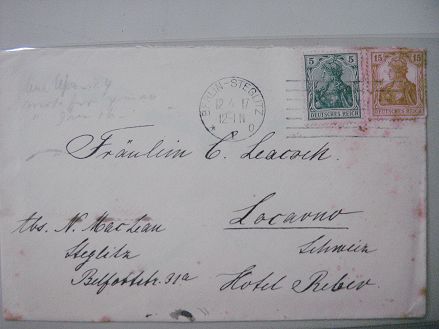 5 5
15 15
DEUTSCHES REICH
DEUTSCHES REICH
BERLIN-STEGLITZ
12.4.17
12-1 N
* o
Fräulein C. Leacock.
Locarno
Schweiz
Hotel Reber
Abs. N. MacLean
Steglitz
Belfortstr. 31a